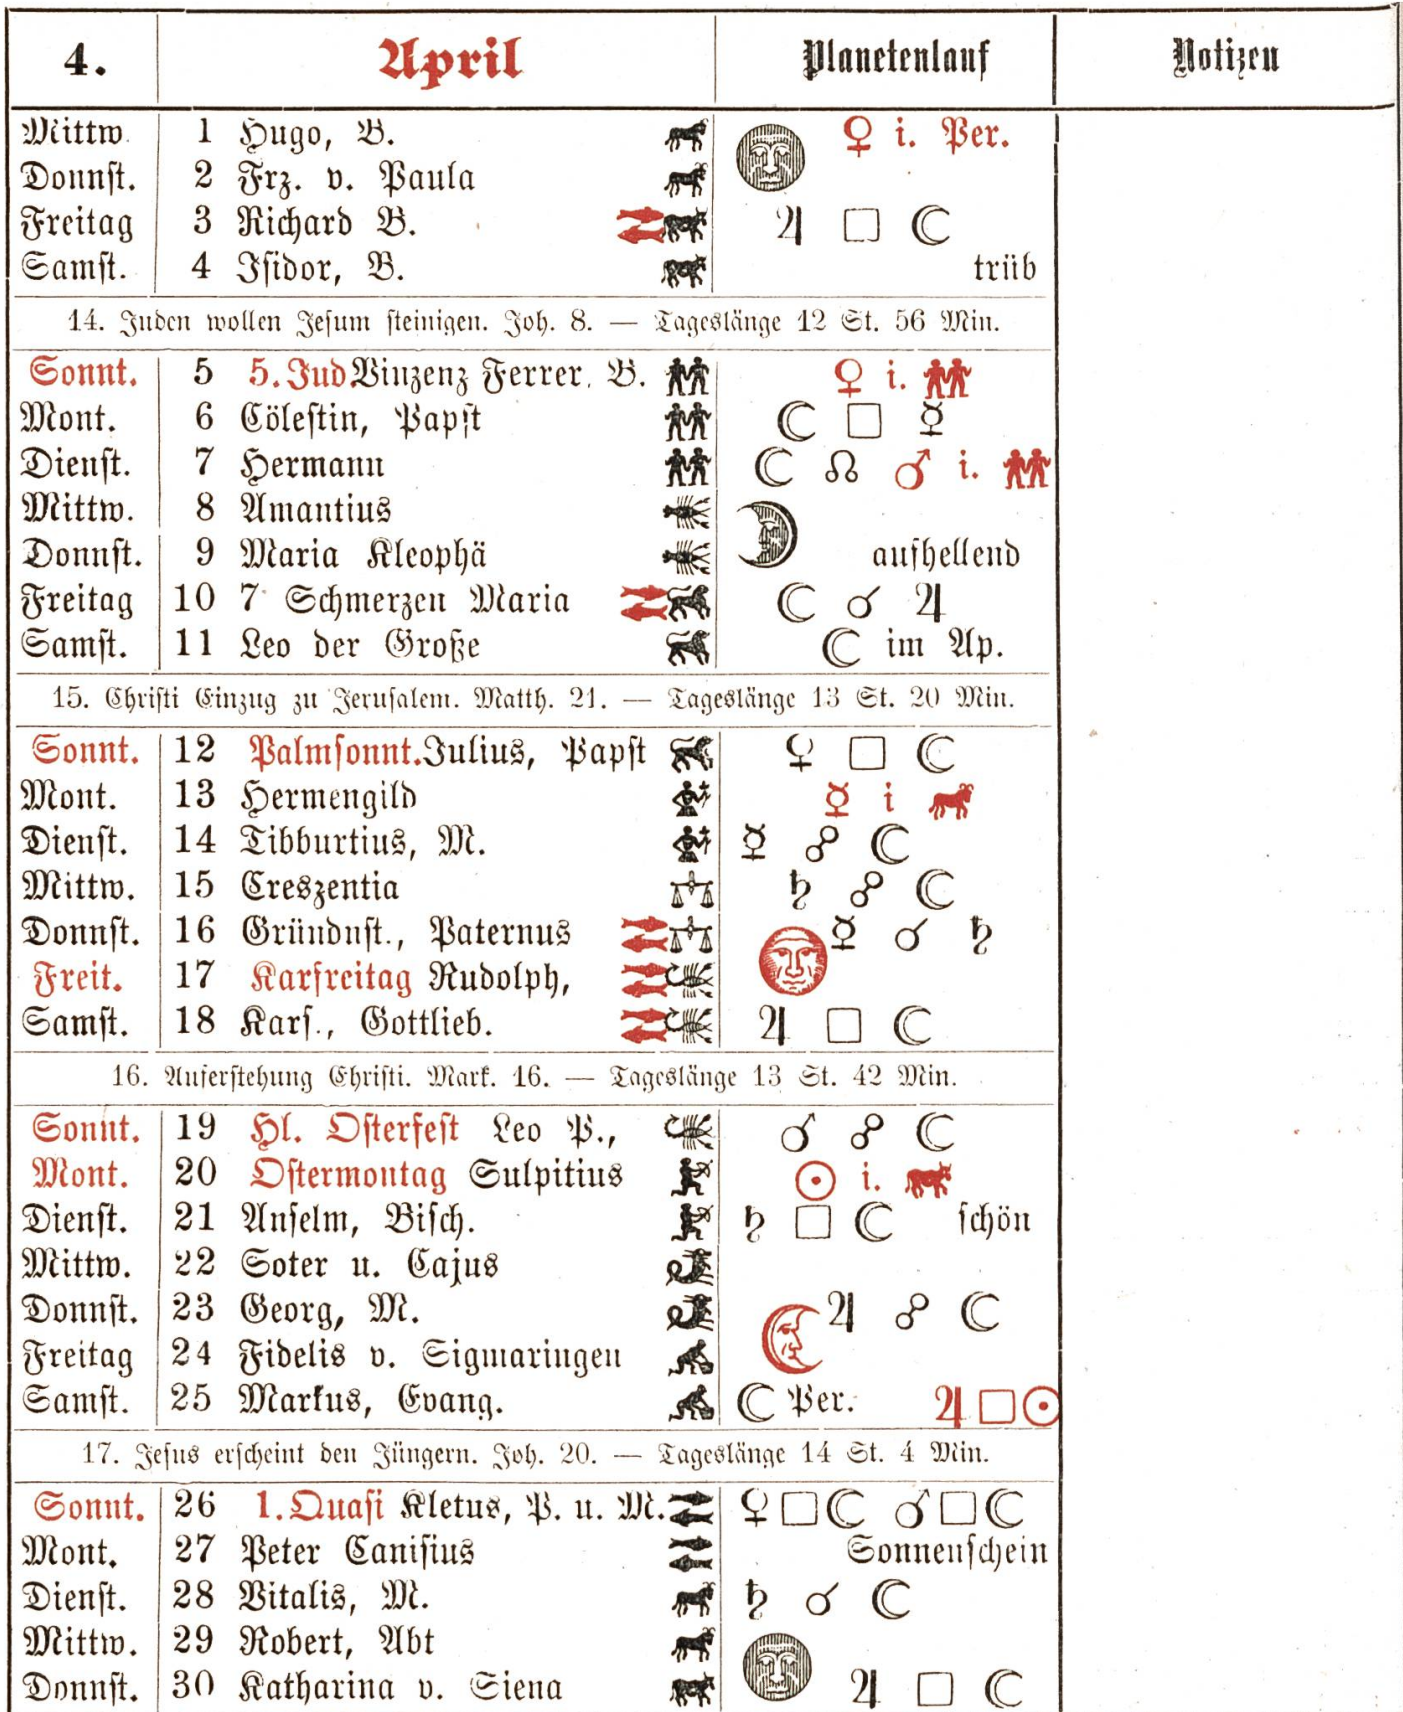 4. April Planetenlauf Notizen
Mittw. 1 Hugo, B. ♀ i. Per.
Donnst. 2 Frz. v. Paula
Freitag 3 Richard B. ♃ □ ☾
Samst. 4 Isidor, B. trüb
14. Juden wollen Jesum steinigen. Joh. 8. — Tageslänge 12 St. 56 Min.
Sonnt. 5 5. Jud Vinzenz Ferrer, B. ♀ i. ♊
Mont. 6 Cölestin, Papst ☾ □ ☿
Dienst. 7 Hermann ☾ ☊ ♂ i. ♊
Mittw. 8 Amantius
Donnst. 9 Maria Kleophä aufhellend
Freitag 10 7 Schmerzen Maria ☾ ☌ ♃
Samst. 11 Leo der Große ☾ im Ap.
15. Christi Einzug zu Jerusalem. Matth. 21. — Tageslänge 13 St. 20 Min.
Sonnt. 12 Palmsonnt. Julius, Papst ♀ □ ☾
Mont. 13 Hermengild ☿ i ♈
Dienst. 14 Tibburtius, M. ☿ ☍ ☾
Mittw. 15 Creszentia ♄ ☍ ☾
Donnst. 16 Gründnst., Paternus ☿ ☌ ♄
Freit. 17 Karfreitag Rudolph,
Samst. 18 Karf., Gottlieb. ♃ □ ☾
16. Auferstehung Christi. Mark. 16. — Tageslänge 13 St. 42 Min.
Sonnt. 19 Hl. Osterfest Leo P., ♂ ☍ ☾
Mont. 20 Ostermontag Sulpitius ☉ i. ♉
Dienst. 21 Anselm, Bisch. ♄ □ ☾ schön
Mittw. 22 Soter u. Cajus
Donnst. 23 Georg, M. ♃ ☍ ☾
Freitag 24 Fidelis v. Sigmaringen
Samst. 25 Markus, Evang. ☾ Per. ♃ □ ☉
17. Jesus erscheint den Jüngern. Joh. 20. — Tageslänge 14 St. 4 Min.
Sonnt. 26 1. Quasi Kletus, P. u. M. ♀ □ ☾ ♂ □ ☾
Mont. 27 Peter Canisius Sonnenschein
Dienst. 28 Vitalis, M. ♄ ☌ ☾
Mittw. 29 Robert, Abt
Donnst. 30 Katharina v. Siena ♃ □ ☾